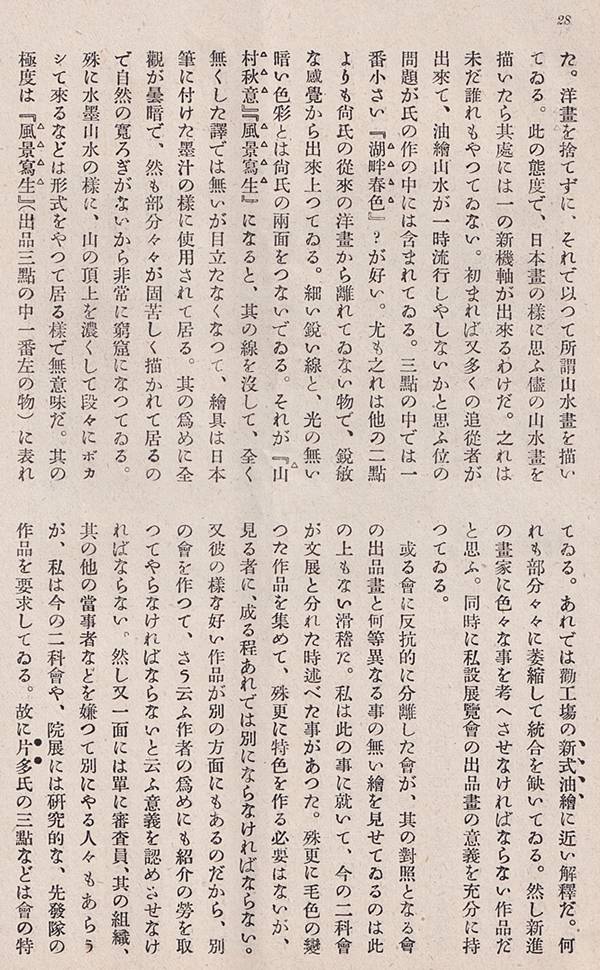 28
た。洋畫を捨てずに、それで以つて所謂山水畫を描い
てゐる。此の態度で、日本畫の樣に思ふ儘の山水畫を
描いたら其處には一の新機軸が出來るわけだ。之れは
未だ誰れもやつてゐない。初まれば又多くの追從者が
出來て、油繪山水が一時流行しやしないかと思ふ位の
問題が氏の作の中には含まれてゐる。三點の中では一
番小さい『湖畔春色』?が好い。尤も之れは他の二點
よりも尙氏の從來の洋畫から離れてゐない物で、銳敏
な感覺から出來上つてゐる。細い銳い線と、光の無い
暗い色彩とは尙氏の兩面をつないでゐる。それが『山
村秋意』『風景寫生』になると、其の線を沒して、全く
無くした譯では無いが目立たなくなつて、繪具は日本
筆に付けた墨汁の樣に使用されて居る。其の爲めに全
觀が曇暗で、然も部分々々が固苦しく描かれて居るの
で自然の寬ろぎがないから非常に窮窟になつてゐる。
殊に水墨山水の樣に、山の頂上を濃くして段々にボカ
シて來るなどは形式をやつて居る樣で無意味だ。其の
極度は『風景寫生』(出品三點の中一番左の物)に表れ
てゐる。あれでは勸工場の新式油繪に近い解釋だ。何
れも部分々々に萎縮して統合を缺いてゐる。然し新進
の畫家に色々な事を考へさせなければならない作品だ
と思ふ。同時に私設展覽會の出品畫の意義を充分に持
つてゐる。
或る會に反抗的に分離した會が、其の對照となる會
の出品畫と何等異なる事の無い繪を見せてゐるのは此
の上もない滑稽だ。私は此の事に就いて、今の二科會
が文展と分れた時述べた事があつた。殊更に毛色の變
つた作品を集めて、殊更に特色を作る必要はないが、
見る者に、成る程あれでは別にならなければならない。
又彼の樣な好い作品が別の方面にもあるのだから、別
の會を作つて、さう云ふ作者の爲めにも紹介の勞を取
つてやらなければならないと云ふ意義を認めさせなけ
ればならない。然し又一面には單に審査員、其の組織、
其の他の當事者などを嫌つて別にやる人々もあらう
が、私は今の二科會や、院展には硏究的な、先發隊の
作品を要求してゐる。故に片多氏の三點などは會の特